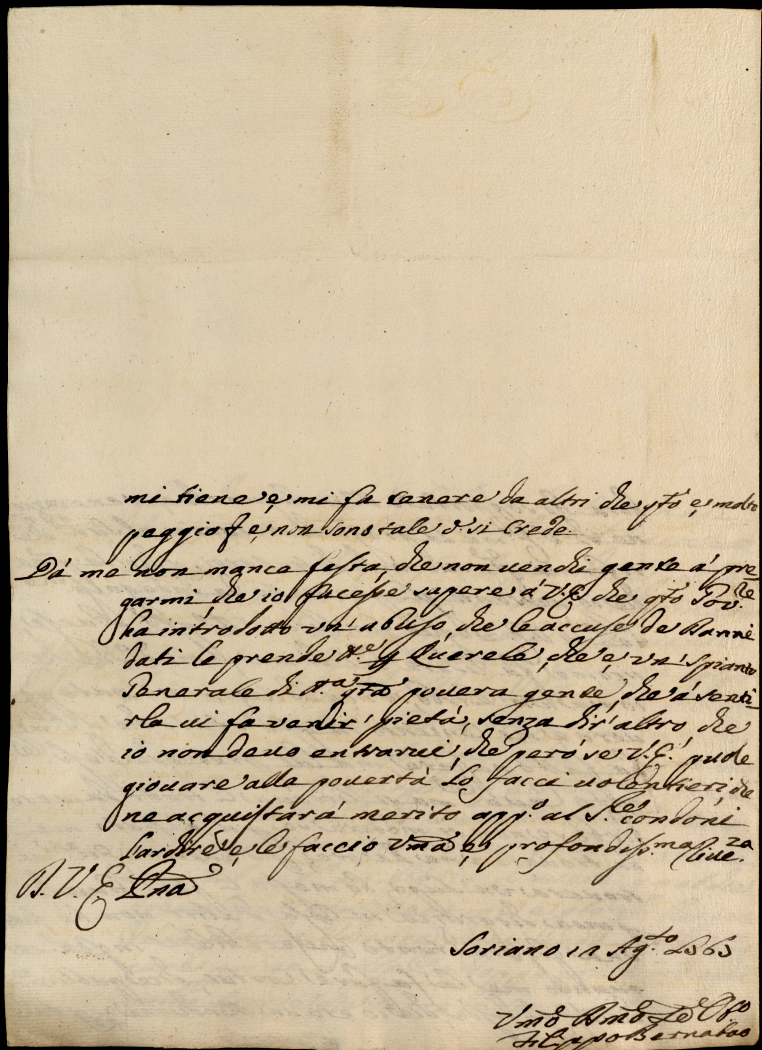 mi tiene, e mi fa tenere da altri che q.to è molto
peggio, e non sono tale si crede.
Dà me non manca festa, che non venchi gente à pre=
garmi, che io facesse sapere à V.E. che q.to Gov.re
ha introdotto un' abuso, che le accuse de Danni
dati le prende Querele, che è un' spianto
Generale di q.ta povera gente, che à senti=
rla vi fa venir' pietà, senza dir' altro, che
io non devo entrarvi, che però se V.E. puole
giovare alla povertà lo facci volentieri, che
ne acquistarà merito app.o al S.re condoni
l'ardire, e le faccio profondiss.ma river.za
D. V. E.
Soriano 11 Ag.to
Filippo Bernabao